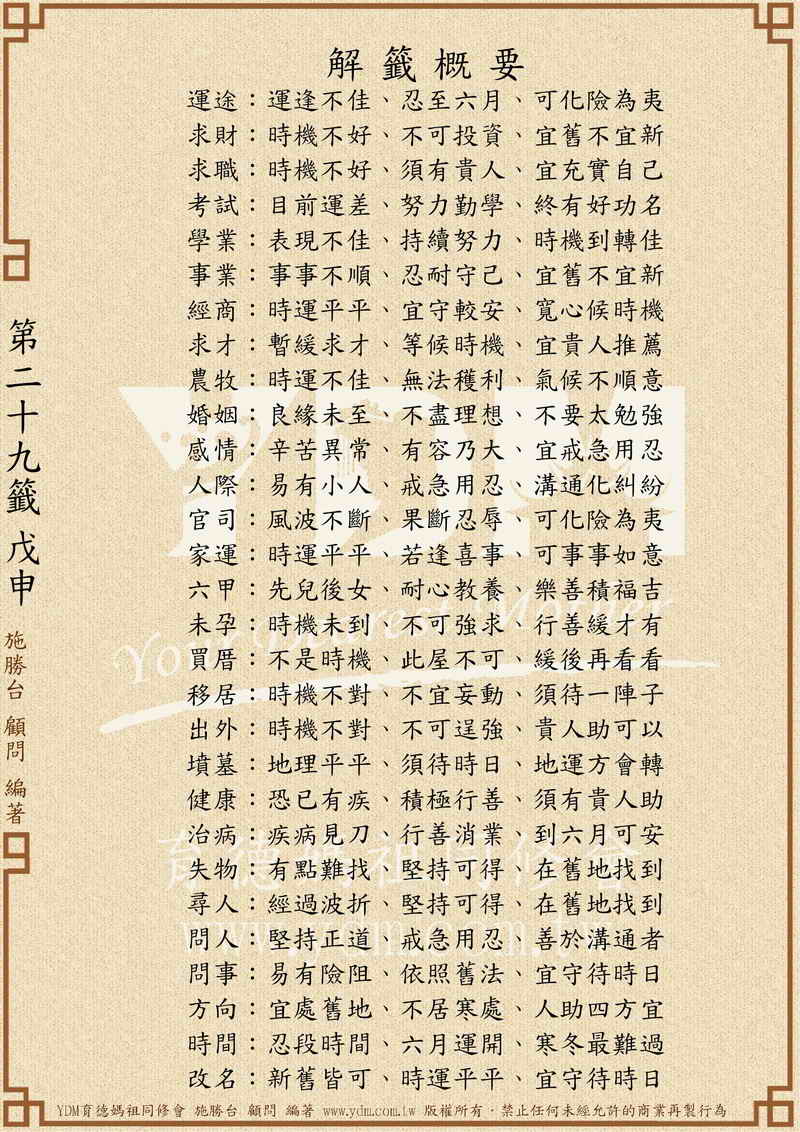 解籤概要
運途：運逢不佳、忍至六月、可化險為夷
求財：時機不好、不可投資、宜舊不宜新
求職：時機不好、須有貴人、宜充實自己
考試：目前運差、努力勤學、終有好功名
學業：表現不佳、持續努力、時機到轉佳
事業：事事不順、忍耐守己、宜舊不宜新
經商：時運平平、宜守較安、寬心候時機
求才：暫緩求才、等候時機、宜貴人推薦
農牧：時運不佳、無法穫利、氣候不順意
婚姻：良緣未至、不盡理想、不要太勉強
感情：辛苦異常、有容乃大、宜戒急用忍
人際：易有小人、戒急用忍、溝通化糾紛
官司：風波不斷、果斷忍辱、可化險為夷
家運：時運平平、若逢喜事、可事事如意
六甲：先兒後女、耐心教養、樂善積福吉
未孕：時機未到、不可強求、行善緩才有
買厝：不是時機、此屋不可、緩後再看看
移居：時機不對、不宜妄動、須待一陣子
出外：時機不對、不可逞強、貴人助可以
墳墓：地理平平、須待時日、地運方會轉
健康：恐已有疾、積極行善、須有貴人助
治病：疾病見刀、行善消業、到六月可安
失物：有點難找、堅持可得、在舊地找到
尋人：經過波折、堅持可得、在舊地找到
問人：堅持正道、戒急用忍、善於溝通者
問事：易有險阻、依照舊法、宜守待時日
方向：宜處舊地、不居寒處、人助四方宜
時間：忍段時間、六月運開、寒冬最難過
改名：新舊皆可、時運平平、宜守待時日
第二十九籤 戊申
施勝台 顧問 編著
YDM
Your Dearest Mother
育德媽祖同修會
www.ydm.com.tw
YDM育德媽祖同修會 施勝台 顧問 編著 www.ydm.com.tw 版權所有．禁止任何未經允許的商業再製行為